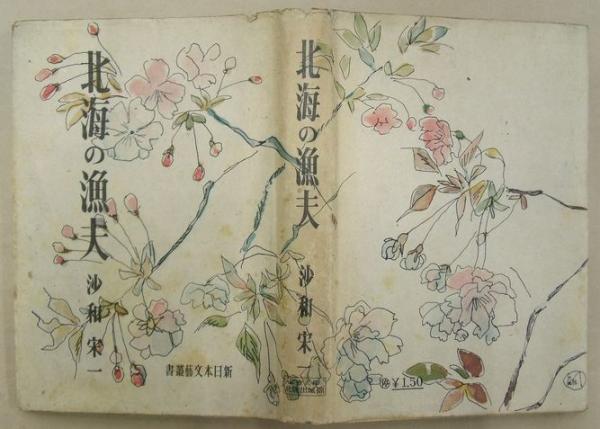 北海の漁夫
沙和宋一
新日本文藝叢書
北海の漁夫
沙和宋一
¥1.50